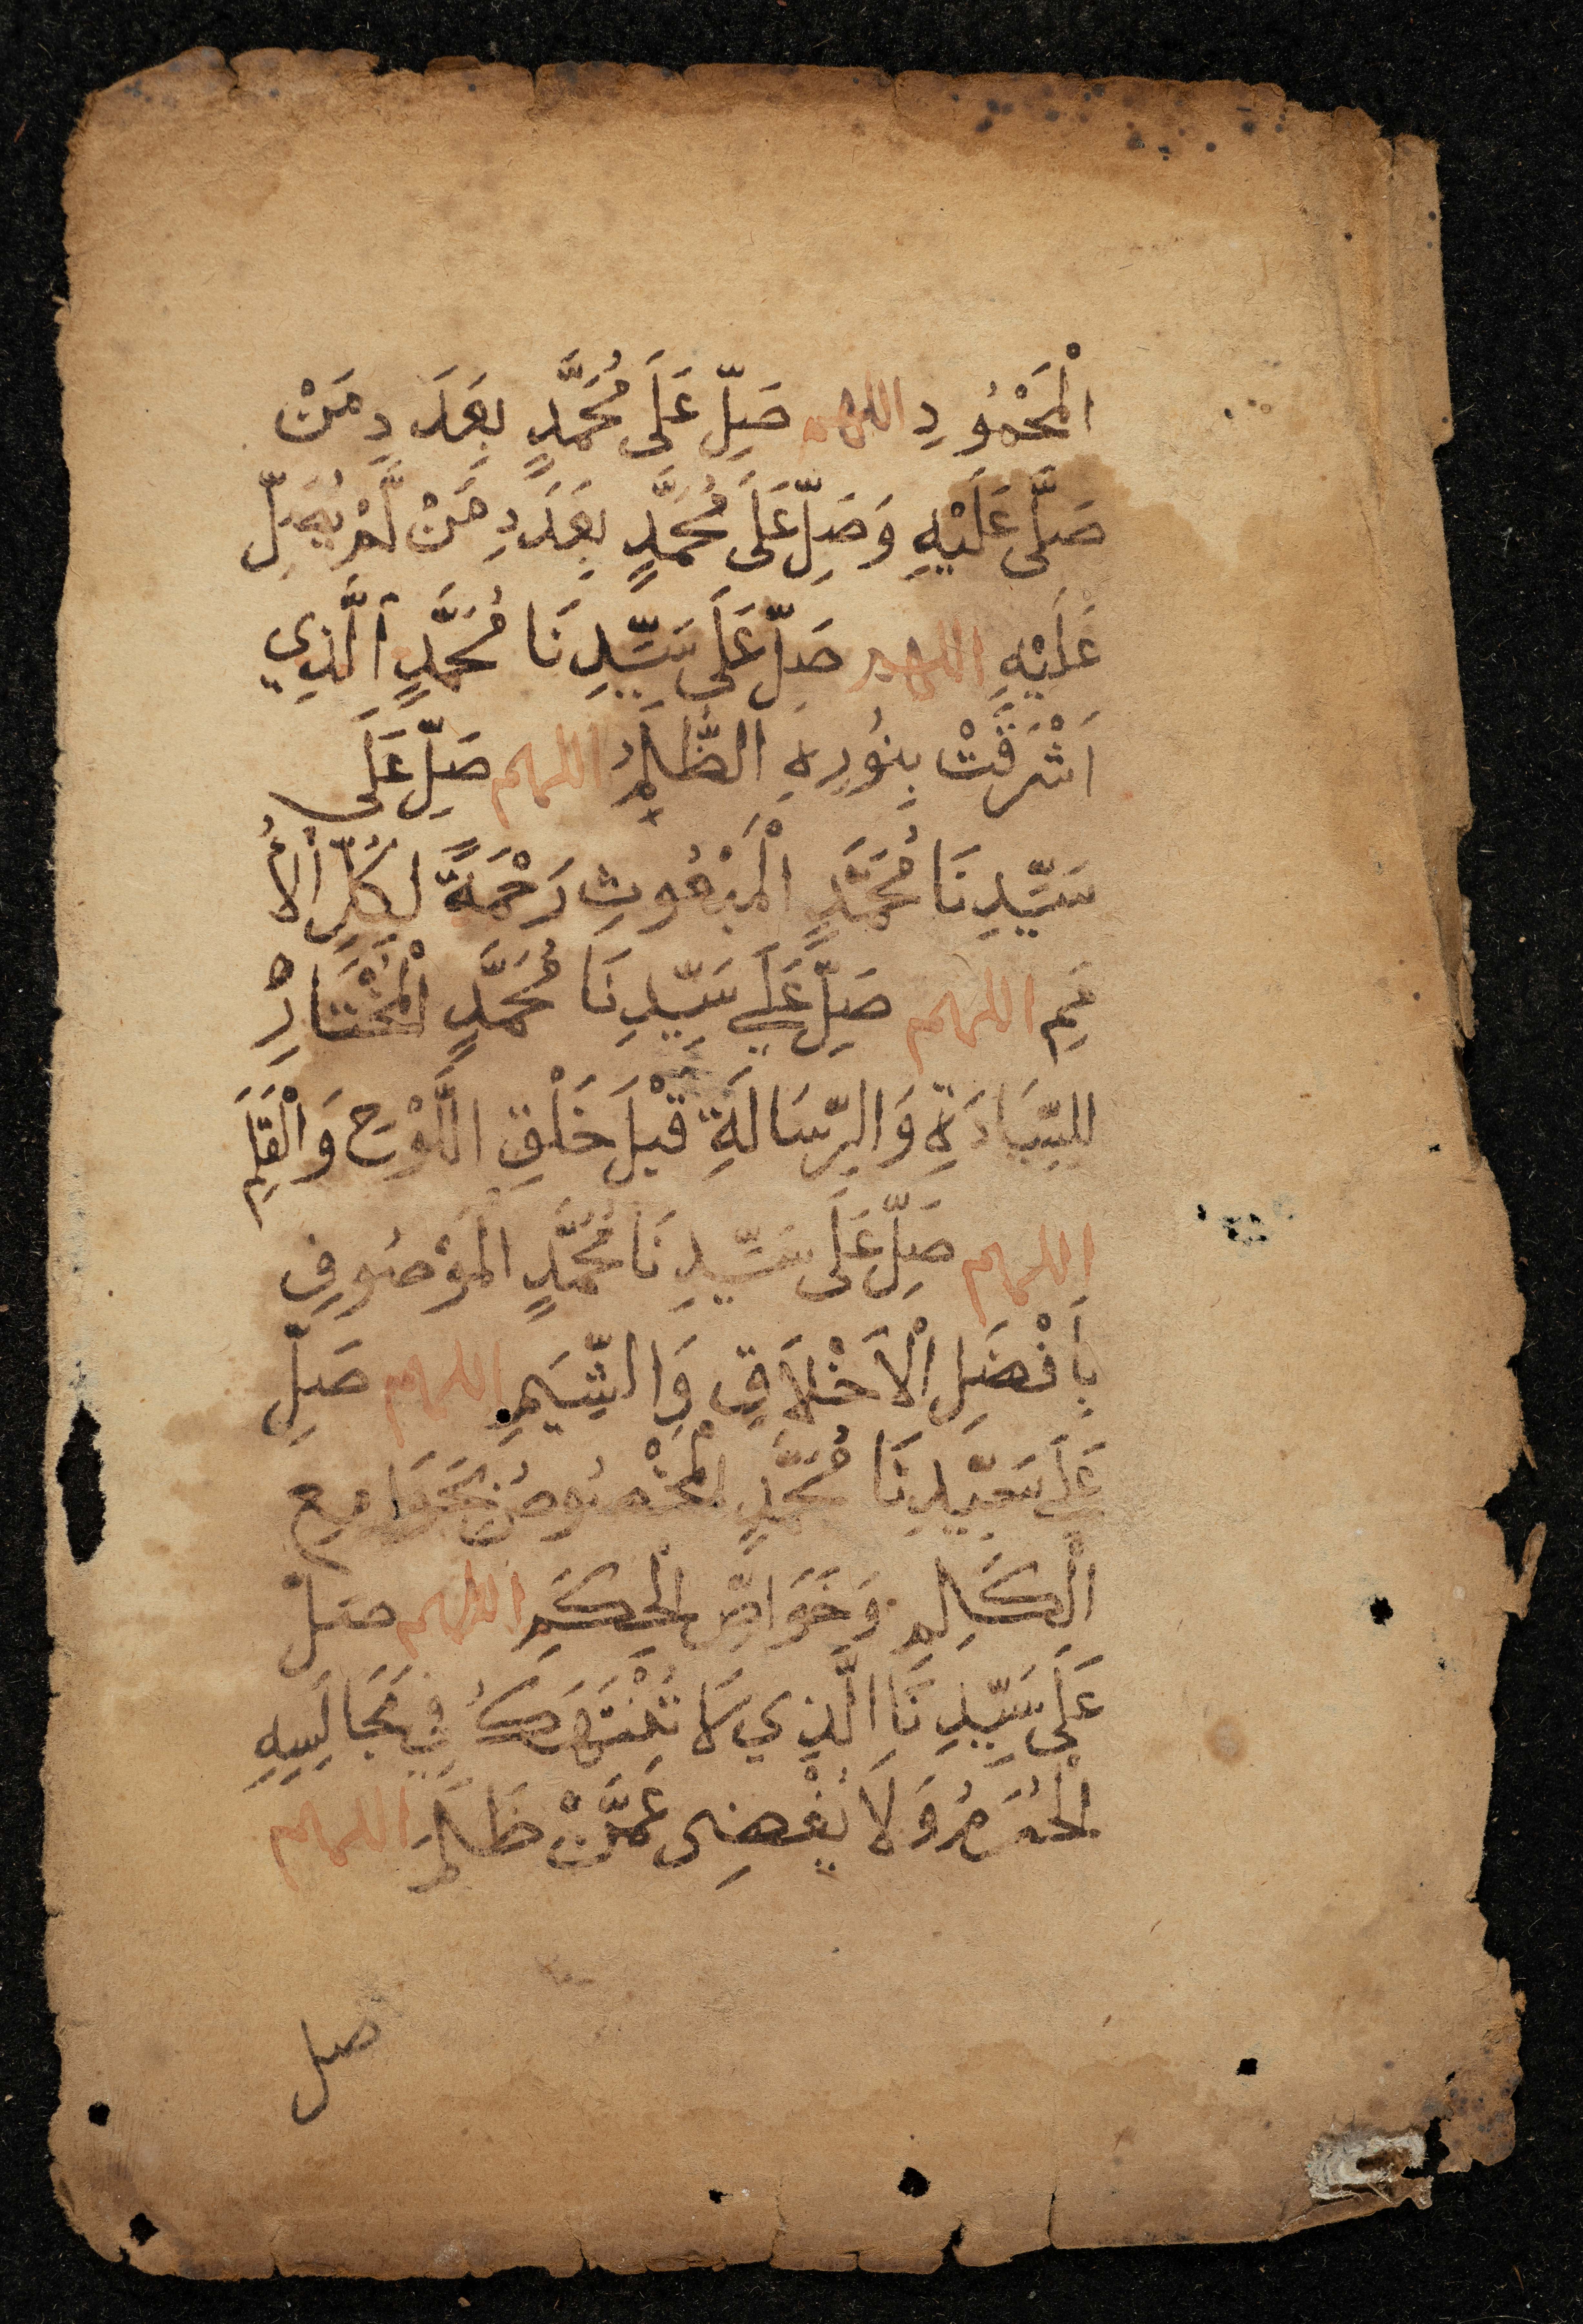 الْمَحْمُودِ اللهم صَلِّ عَلَى مُحَمَّدٍ بِعَدَدِ مَنْ
صَلَّى عَلَيْهِ وَصَلِّ عَلَى مُحَمَّدٍ بِعَدَدِ مَنْ لَّمْ يُصَلِّ
عَلَيْهِ اللهم صَلِّ عَلَى سَيِّدِنَا مُحَمَّدٍ الَّذِي
اَشْرَقَتْ بِنُورِهِ الظُّلَمُ اللهم صَلِّ عَلَى
سَيِّدِنَا مُحَمَّدٍ الْمَبْعُوثِ رَحْمَةً لِكُلِّ الْأُ
مَمِ اللهم صَلِّ عَلَي سَيِّدِنَا مُحَمَّدٍ الْمُخْتَارِ
لِلسِّيَادَةِ وَالرِّسَالَةِ قَبْلَ خَلْقِ اللَّوْحِ وَالْقَلَمِ
اللهم صَلِّ عَلَى سَيِّدِنَا مُحَمَّدٍ الْمَوْصُوفِ
بِاَفْضَلِ الْاَخْلَاقِ وَالشِّيَمِ اللهم صَلِّ
عَلَي سَيِّدِنَا مُحَمَّدٍ الْمَخْصُوصُ بِجَوَامِعِ
الْكَلِمِ وَخَوَاصِّ الْحِكَمِ اللهم صل
عَلَى سَيِّدِنَا الَّذِي لَا تُنْتَهَكُ فِي مَجَالِسِهِ
الْحُرَمُ وَلَا يُغْضِى عَمَّنْ ظَلَمَ اللهم
صل